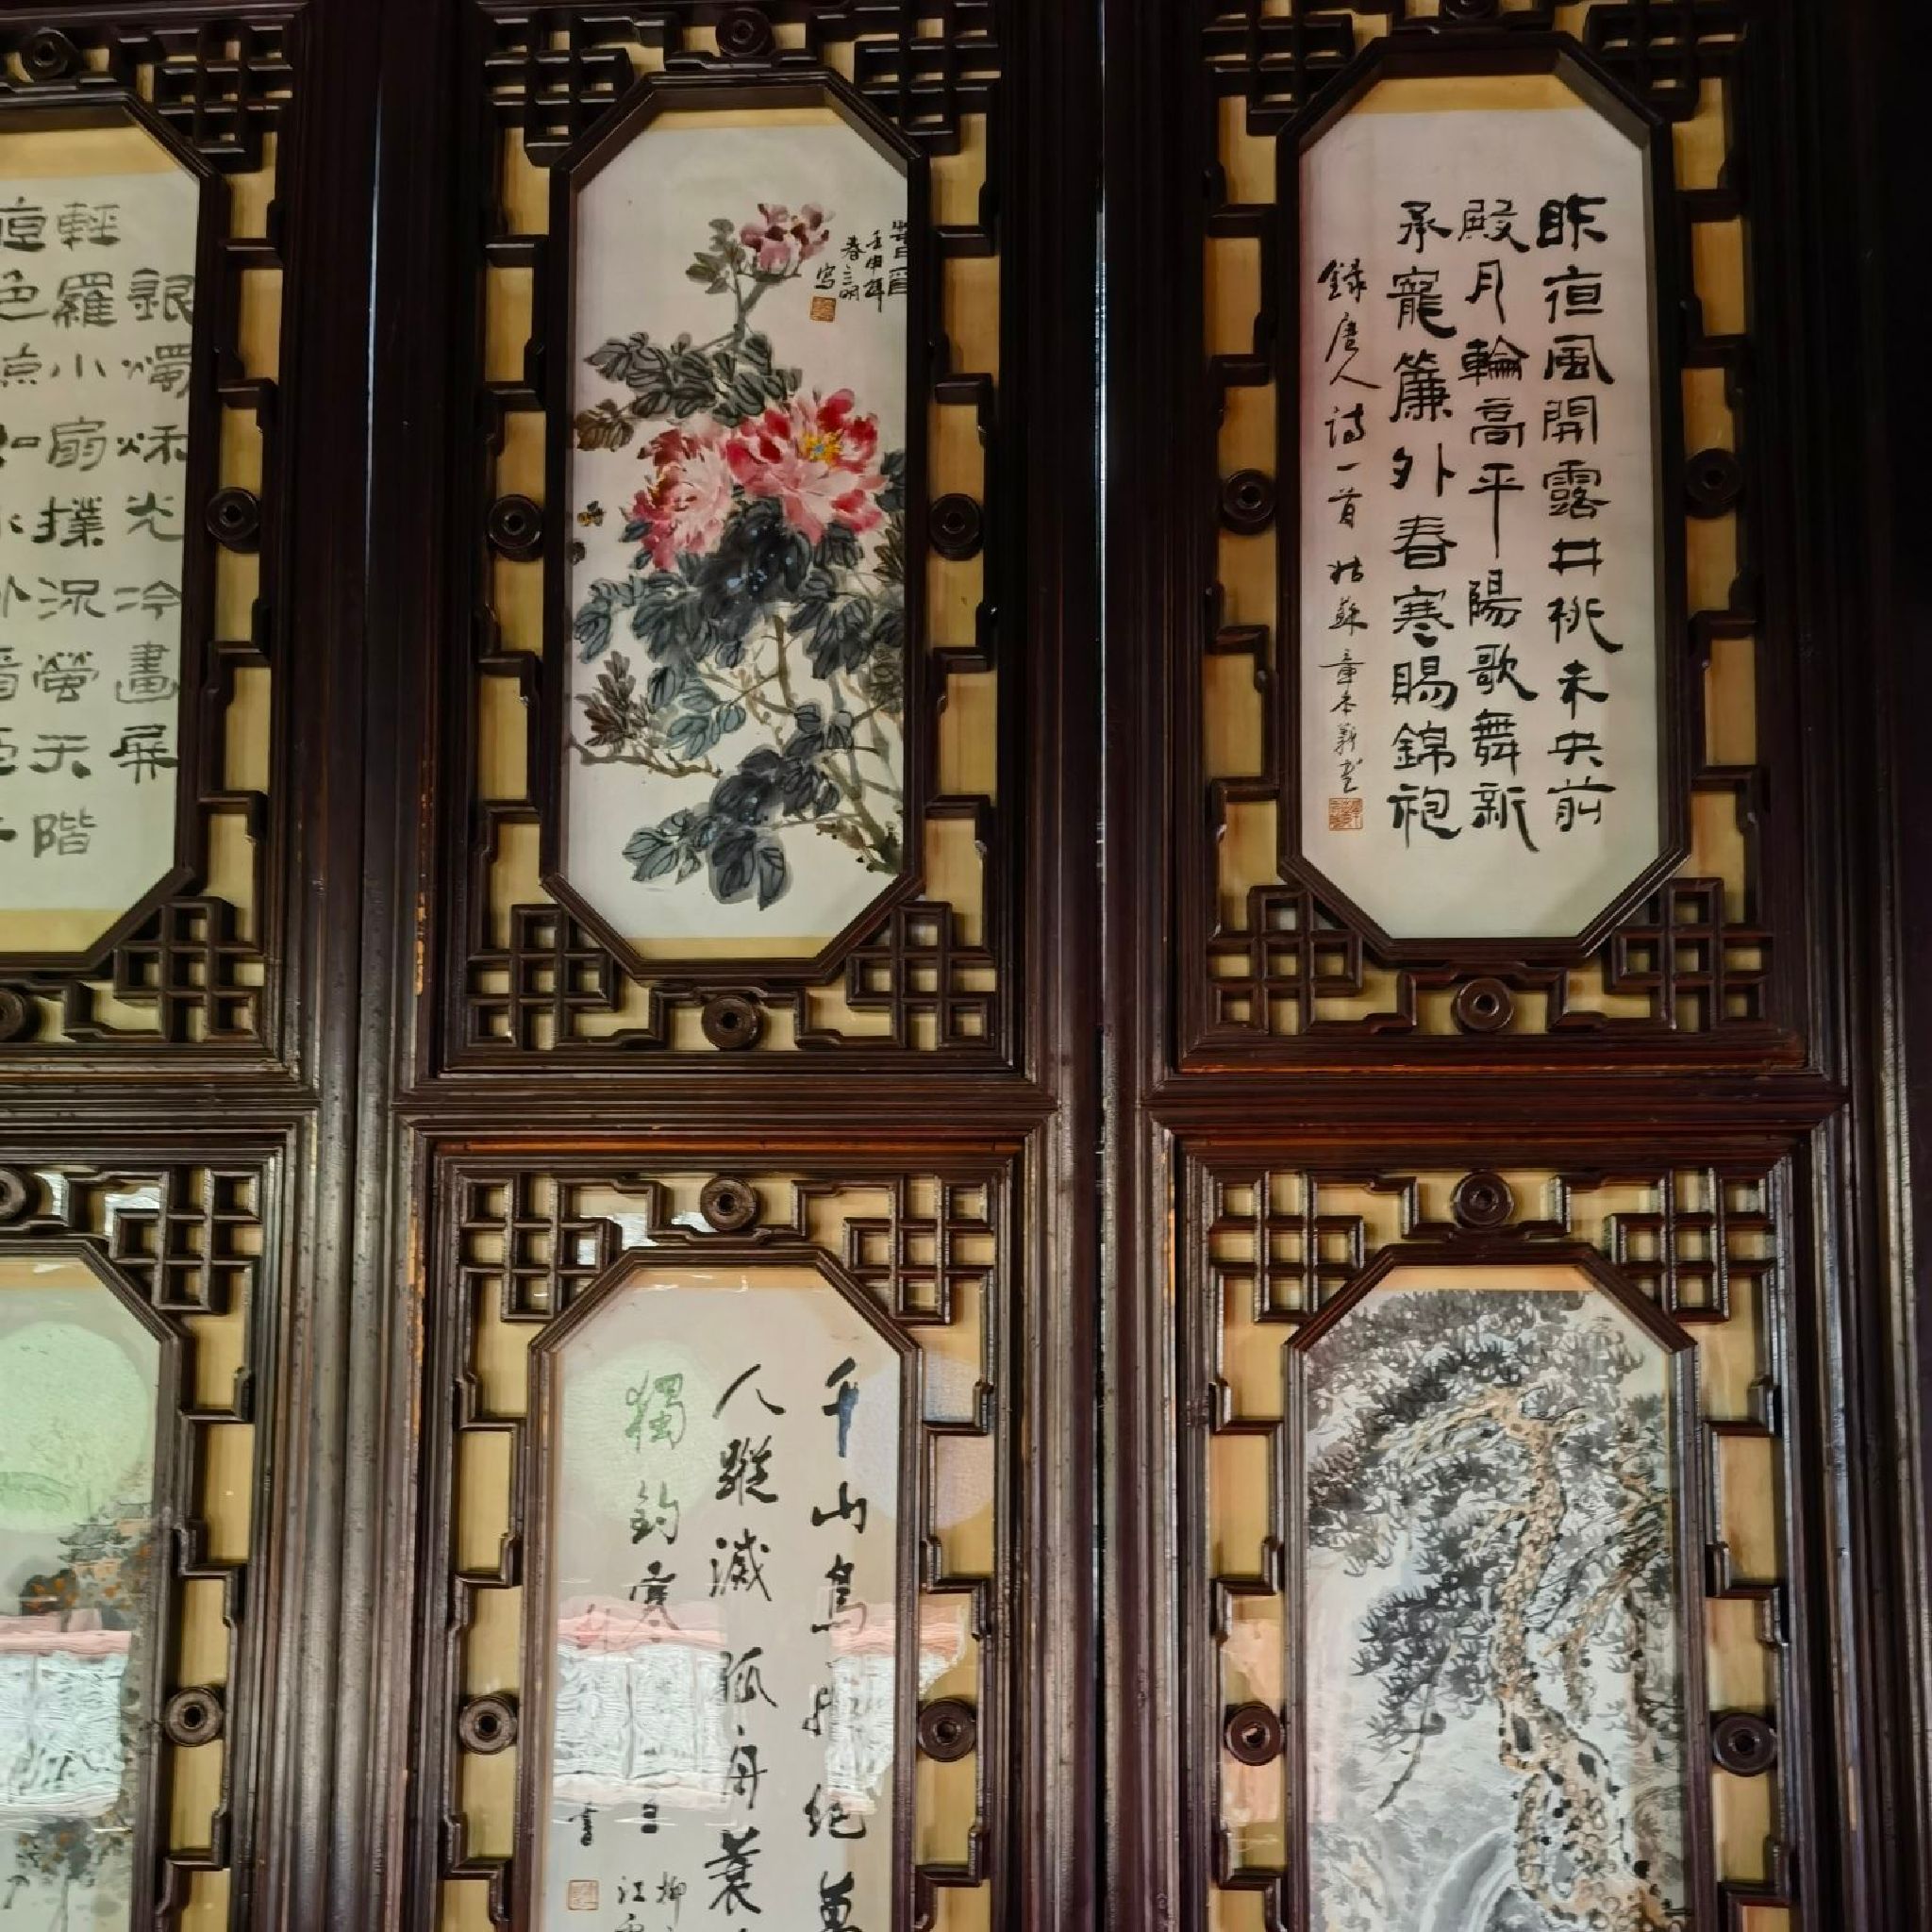 昨夜風開露井桃未央前
殿月輪高平陽歌舞新
承寵簾外春寒賜錦袍
錄唐人詩一首 姑蘇 章本義書
壬申年
春立明
寫
銀燭秋光冷畫屏
輕羅小扇撲流螢天階
色涼如水臥
千山鳥飛絕萬
人蹤滅孤舟蓑
獨釣寒江雪
柳
江雪
書